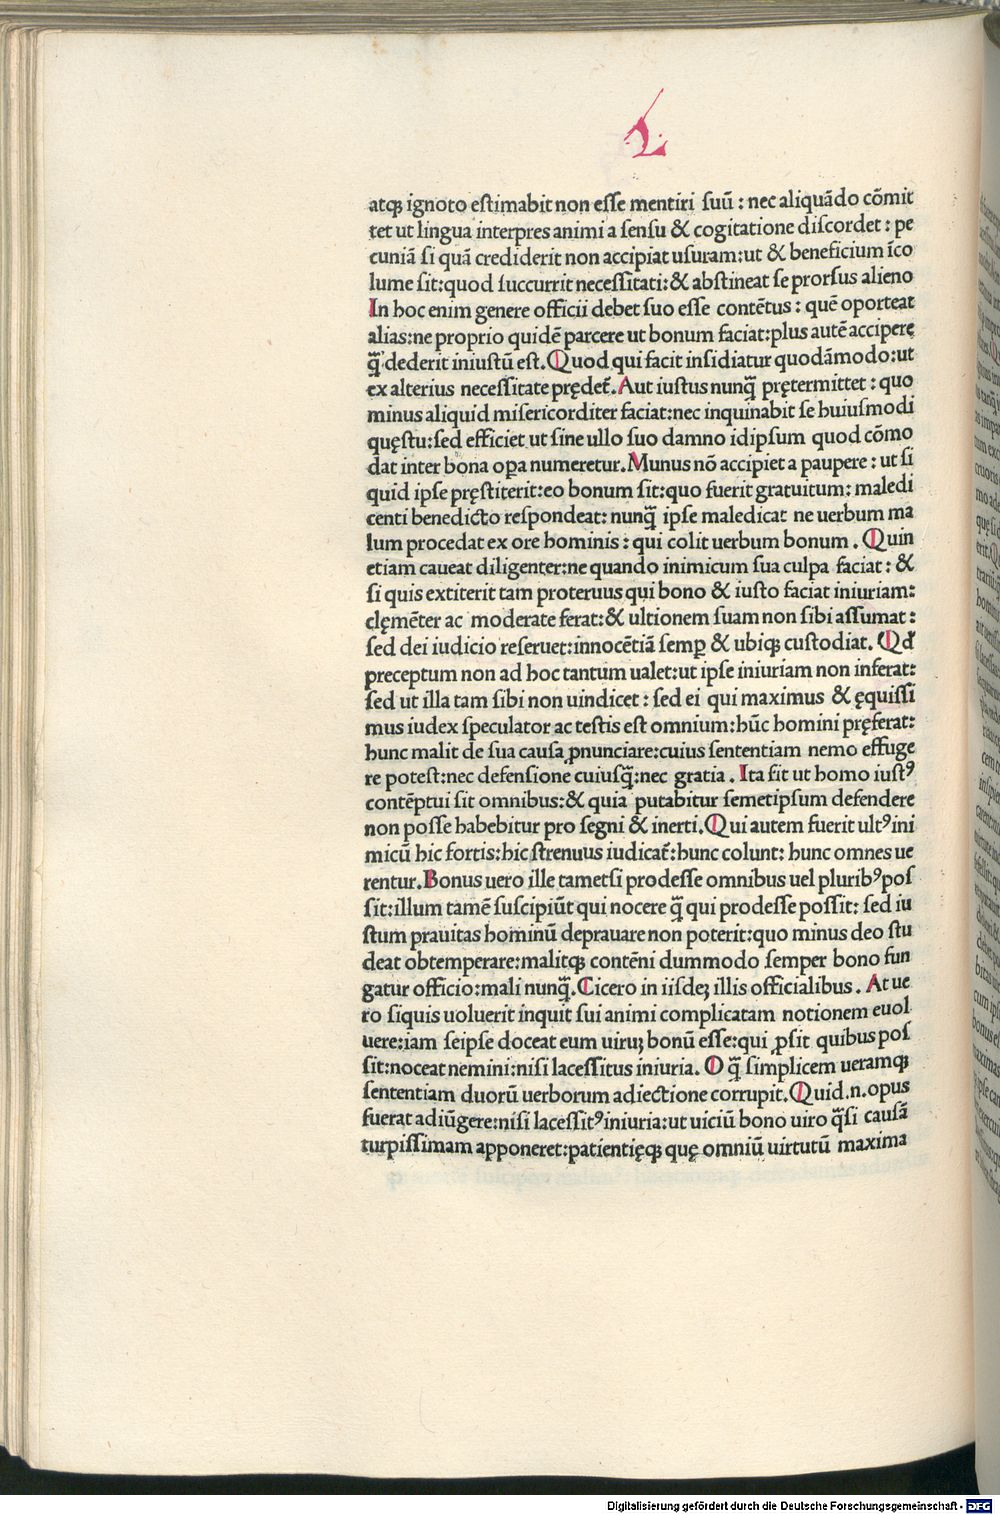 L
atqꝫ ignoto estimabit non esse mentiri suū : nec aliquādo cōmit
tet ut lingua interpres animi a sensu & cogitatione discordet : pe
cuniā si quā crediderit non accipiat usuram:ut & beneficium īco
lume sit:quod succurrit necessitati:& abstineat se prorsus alieno
In hoc enim genere officii debet suo esse contētus : quē oporteat
alias:ne proprio quidē parcere ut bonum faciat:plus autē accipere
q̄ dederit iniustū est. Quod qui facit insidiatur quodāmodo:ut
ex alterius necessitate prędet̄. Aut iustus nunq̄ prętermittet : quo
minus aliquid misericorditer faciat:nec inquinabit se huiusmodi
quęstu:sed efficiet ut sine ullo suo damno idipsum quod cōmo
dat inter bona oꝑa numeretur. Munus nō accipiet a paupere : ut si
quid ipse pręstiterit:eo bonum sit:quo fuerit gratuitum: maledi
centi benedicto respondeat: nunq̄ ipse maledicat ne uerbum ma
lum procedat ex ore hominis : qui colit uerbum bonum . Quin
etiam caueat diligenter:ne quando inimicum sua culpa faciat : &
si quis extiterit tam proteruus qui bono & iusto faciat iniuriam:
clęmēter ac moderate ferat:& ultionem suam non sibi assumat :
sed dei iudicio reseruet:innocētiā semꝑ & ubiqꝫ custodiat. Qđ
preceptum non ad hoc tantum ualet:ut ipse iniuriam non inferat:
sed ut illa tam sibi non uindicet : sed ei qui maximus & ęquissi
mus iudex speculator ac testis est omnium:hūc homini pręferat:
hunc malit de sua causa ꝓnunciare:cuius sententiam nemo effuge
re potest:nec defensione cuiusq̄:nec gratia . Ita fit ut homo iustꝰ
contēptui sit omnibus:& quia putabitur semetipsum defendere
non posse habebitur pro segni & inerti. Qui autem fuerit ultꝰ ini
micū hic fortis:hic strenuus iudicat̄:hunc colunt: hunc omnes ue
rentur. Bonus uero ille tametsi prodesse omnibus uel pluribꝰ pos
sit:illum tamē suscipiūt qui nocere q̄ qui prodesse possit: sed iu
stum prauitas hominū deprauare non poterit:quo minus deo stu
deat obtemperare:malitqꝫ contēni dummodo semper bono fun
gatur officio:mali nunq̄. Cicero in iisdeꝫ illis officialibus . At ue
ro siquis uoluerit inquit sui animi complicatam notionem euol
uere:iam seipse doceat eum uiruꝫ bonū esse:qui ꝓsit quibus pos
sit:noceat nemini:nisi lacessitus iniuria. O q̄ simplicem ueramqꝫ
sententiam duorū uerborum adiectione corrupit. Quid.n.opus
fuerat adiūgere:nisi lacessitꝰ iniuria:ut uiciū bono uiro q̄si caudā
turpissimam apponeret:patientięqꝫ quę omniū uirtutū maxima
Digitalisierung gefördert durch die Deutsche Forschungsgemeinschaft - DFG